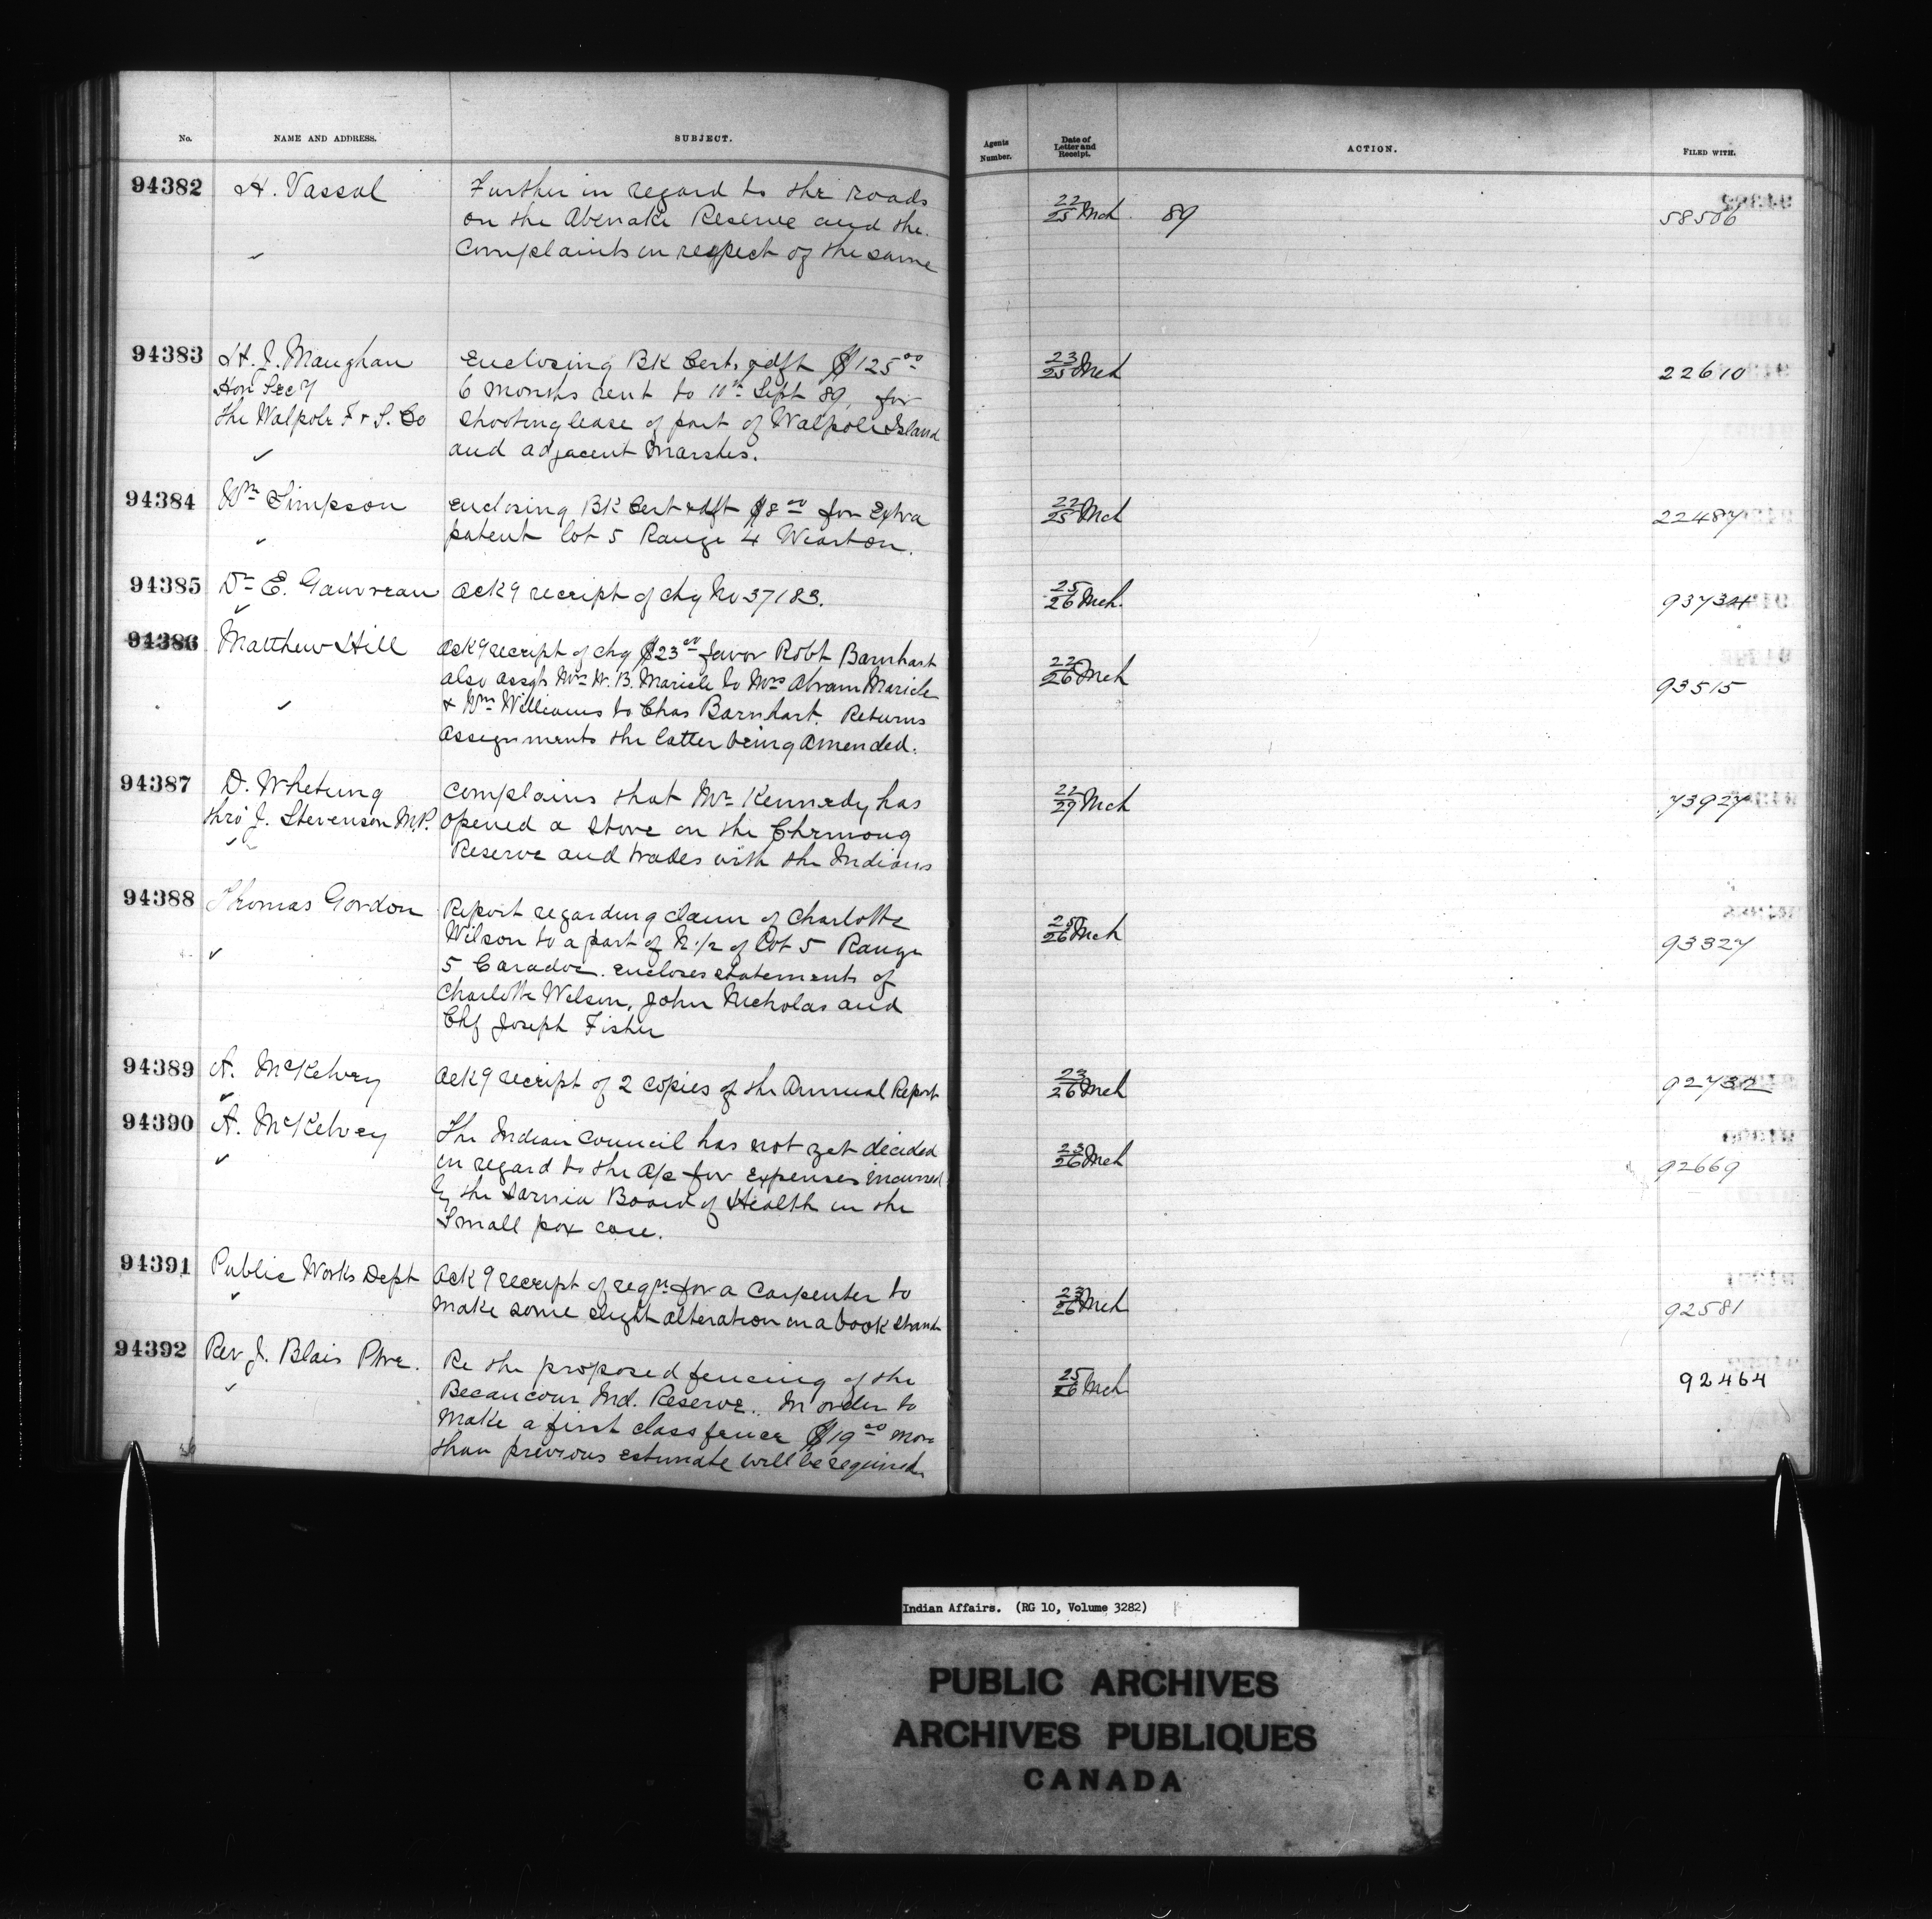 No. NAME AND ADDRESS. SUBJECT. Agents Number. Date of Letter and Receipt. ACTION. FILED WITH.
94382 H. Vassal Further in regard to the roads 22/25 Mch 89 58506
on the Abenakis Reserve and the
complaints in respect of the same
94383 H. J. Maughan Enclosing BK Cert. & dft $125 00 23/25 Mch 22610
Hon Secy 6 months rent to 10th Sept 89, for
the Walpole F & S. Co shooting lease of part of Walpole Island
and adjacent Marshes.
94384 Wm Simpson Enclosing BK Cert & dft $8 00 for Extra 22/25 Mch 22487
patent lot 5 Range 4 Wiarton.
94385 Dr E. Gauvreau Ack9 receipt of chq No 37183. 25/26 Mch. 93734
94386 Matthew Hill Ack9 receipt of chq $23 00 favor Robt Barnhart 22/26 Mch 93515
also assgts Mrs W. B. Maricle to Mrs Abram Maricle
& Wm Williams to Chas Barnhart. Returns
Assignments the latter being amended.
94387 D. Whetung Complains that Mr Kennedy has 22/29 Mch 73927
thro' J. Stevenson M.P. opened a store on the Chemong
Reserve and trades with the Indians
94388 Thomas Gordon Report regarding claim of Charlotte 25/26 Mch 93327
Wilson to a part of N. 1/2 of Lot 5 Range
5 Caradoc. encloses statements of
Charlotte Wilson, John Nicholas and
Chf Joseph Fisher
94389 A. McKelvey Ack9 receipt of 2 copies of the Annual Report 23/26 Mch 92732
94390 A. McKelvey The Indian Council has not yet decided 23/26 Mch 92669
in regard to the a/c for expenses incurred
by the Sarnia Board of Health in the
Small pox case.
94391 Public Works Dept Ack9 receipt of reqn for a Carpenter to 23/26 Mch 92581
make some slight alteration in a book stand
94392 Rev J. Blais Ptre. Re the proposed fencing of the 25/26 Mch 92464
Becancour Ind. Reserve. In order to
make a first class fence $19 00 more
than previous estimate will be required
Indian Affairs. (RG 10, Volume 3282)
PUBLIC ARCHIVES
ARCHIVES PUBLIQUES
CANADA